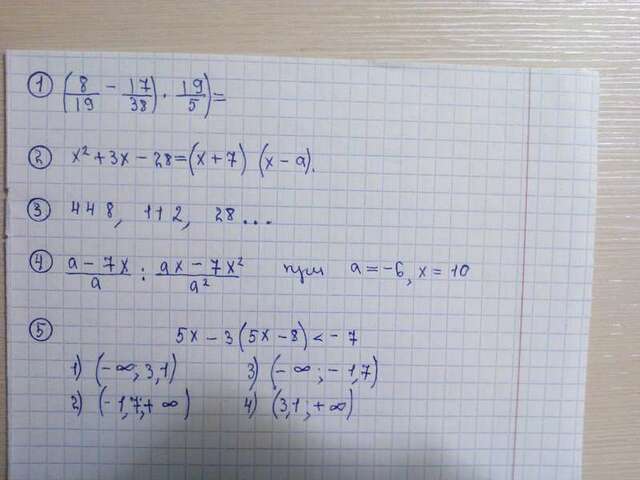 1 (8/19 − 17/38) · 19/5) =
2 x² + 3x − 28 = (x + 7) (x − a).
3 448, 112, 28...
4 (a − 7x)/a : (ax − 7x²)/a² при a = −6, x = 10
5
5x − 3(5x − 8) < − 7
1) (−∞; 3,1) 3) (−∞; −1,7)
2) (−1,7; +∞) 4) (3,1; +∞)